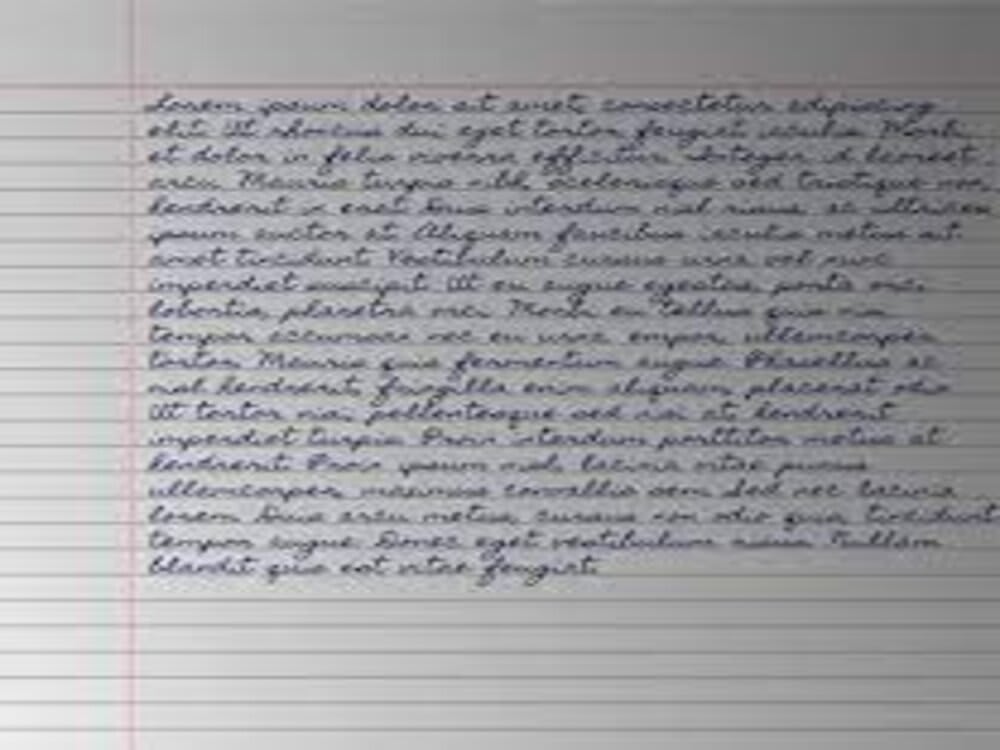 Lorem ipsum dolor sit amet, consectetur adipiscing
elit. Ut rhoncus dui eget tortor feugiat iaculis. Morbi
et dolor in felis viverra efficitur. Integer id laoreet
arcu. Mauris turpis nibh, scelerisque sed tristique non,
hendrerit in erat. Duis interdum nisl risus, ac ultricies
ipsum auctor at. Aliquam faucibus iaculis metus sit
amet tincidunt. Vestibulum cursus urna vel nunc
imperdiet suscipit. Ut eu augue egestas, porta orci,
lobortis, pharetra orci. Morbi eu tellus quis nisi
tempor accumsan nec eu urna. empor, ullamcorper
tortor. Mauris quis fermentum augue. Phasellus ac
nisl hendrerit, fringilla enim aliquam, placerat odio.
Ut tortor nisi, pellentesque sed nisi at, hendrerit
imperdiet turpis. Proin interdum porttitor metus at
hendrerit. Proin ipsum nisl, lacinia vitae purus
ullamcorper, maximus convallis sem. Sed nec lacinia
lorem. Duis arcu metus, cursus non odio quis, tincidunt
tempor augue. Donec eget vestibulum risus. Nullam
blandit quis est vitae feugiat.